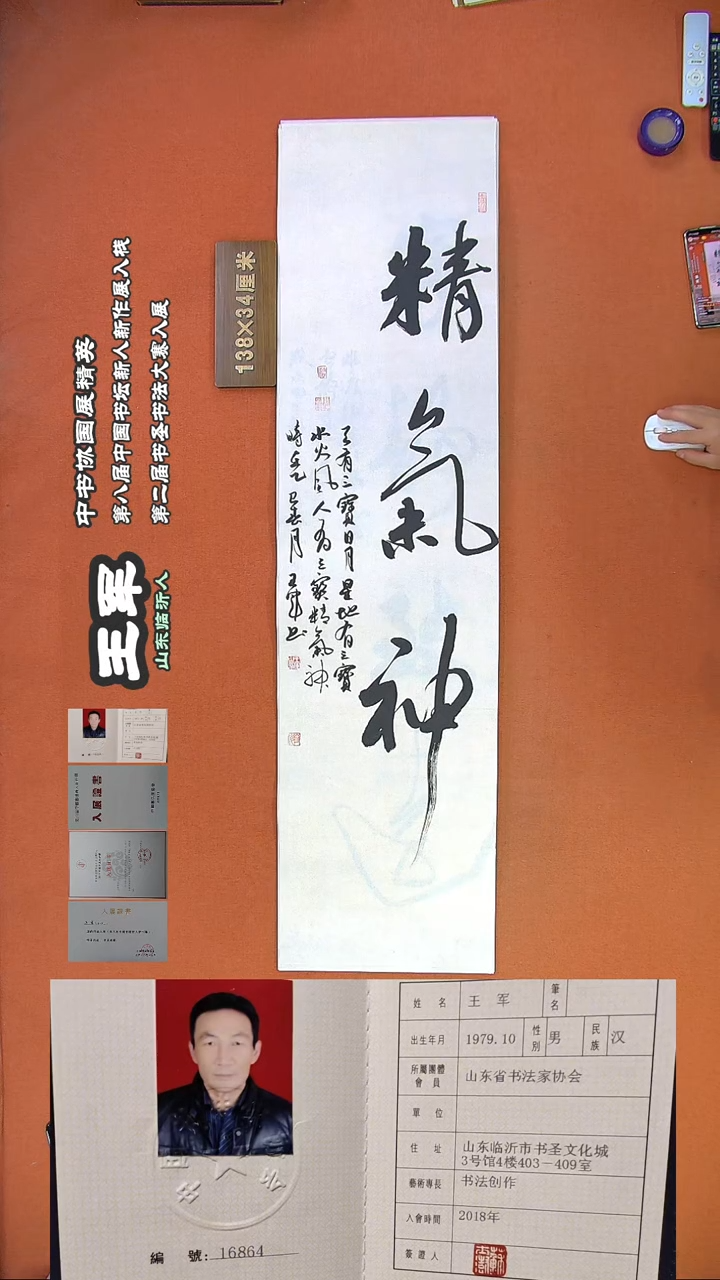 精氣神
天有三寶日月星地有三寶
水火風人有三寶精氣神
時乙巳春月王軍書
138×34厘米
中书协国展精英
第八届中国书坛新人新作展入展
第二届书圣书法大赛入展
王军
山东临沂人
入展證書
姓 名 王 军 筆名
出生年月 1979.10 性別 男 民族 汉
所屬團體會員 山东省书法家协会
單 位
住 址 山东临沂市书圣文化城
3号馆4楼403－409室
藝術專長 书法创作
入會時間 2018年
簽證人
編 號: 16864